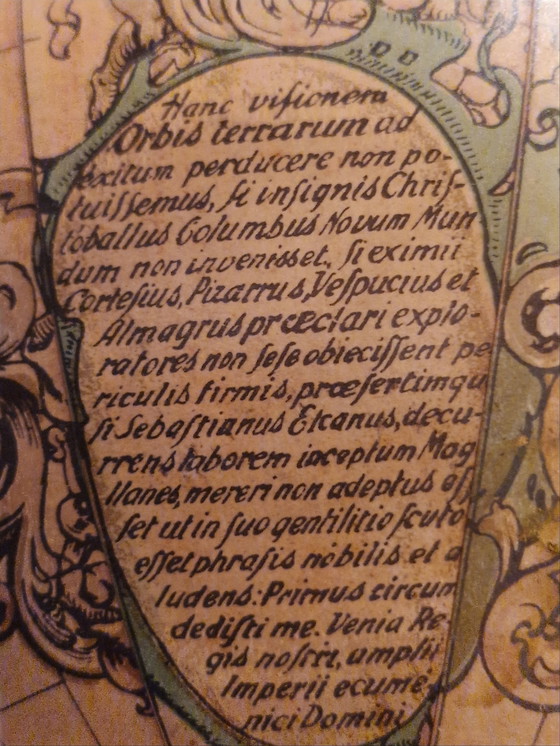 Hanc visionem
Orbis terrarum ad
exitum perducere non po-
tuissemus, si insignis Chris-
toballus Columbus Novum Mun
dum non invenisset, si eximii
Cortesius, Pizarrus, Vespucius et
Almagrus præclari explo-
ratores non sese obiecissent pe
riculis firmis, præsertim qu
si Sebastianus Elcanus, decu-
rrens laborem inceptum Mag
llanes, mereri non adeptus es
set ut in suo gentilitio scuto
esset phrasis nobilis et a
ludens: Primus circum
dedisti me. Venia Re
gis nostri, amplii
Imperii ecume
nici Domini